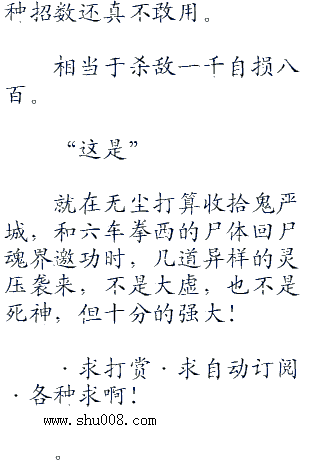 种招数还真不敢用。
相当于杀敌一千自损八
百。
“这是”
就在无尘打算收拾鬼严
城，和六车拳西的尸体回尸
魂界邀功时，几道异样的灵
压袭来，不是大虚，也不是
死神，但十分的强大！
·求打赏·求自动订阅
·各种求啊！
www.shu008.com
。